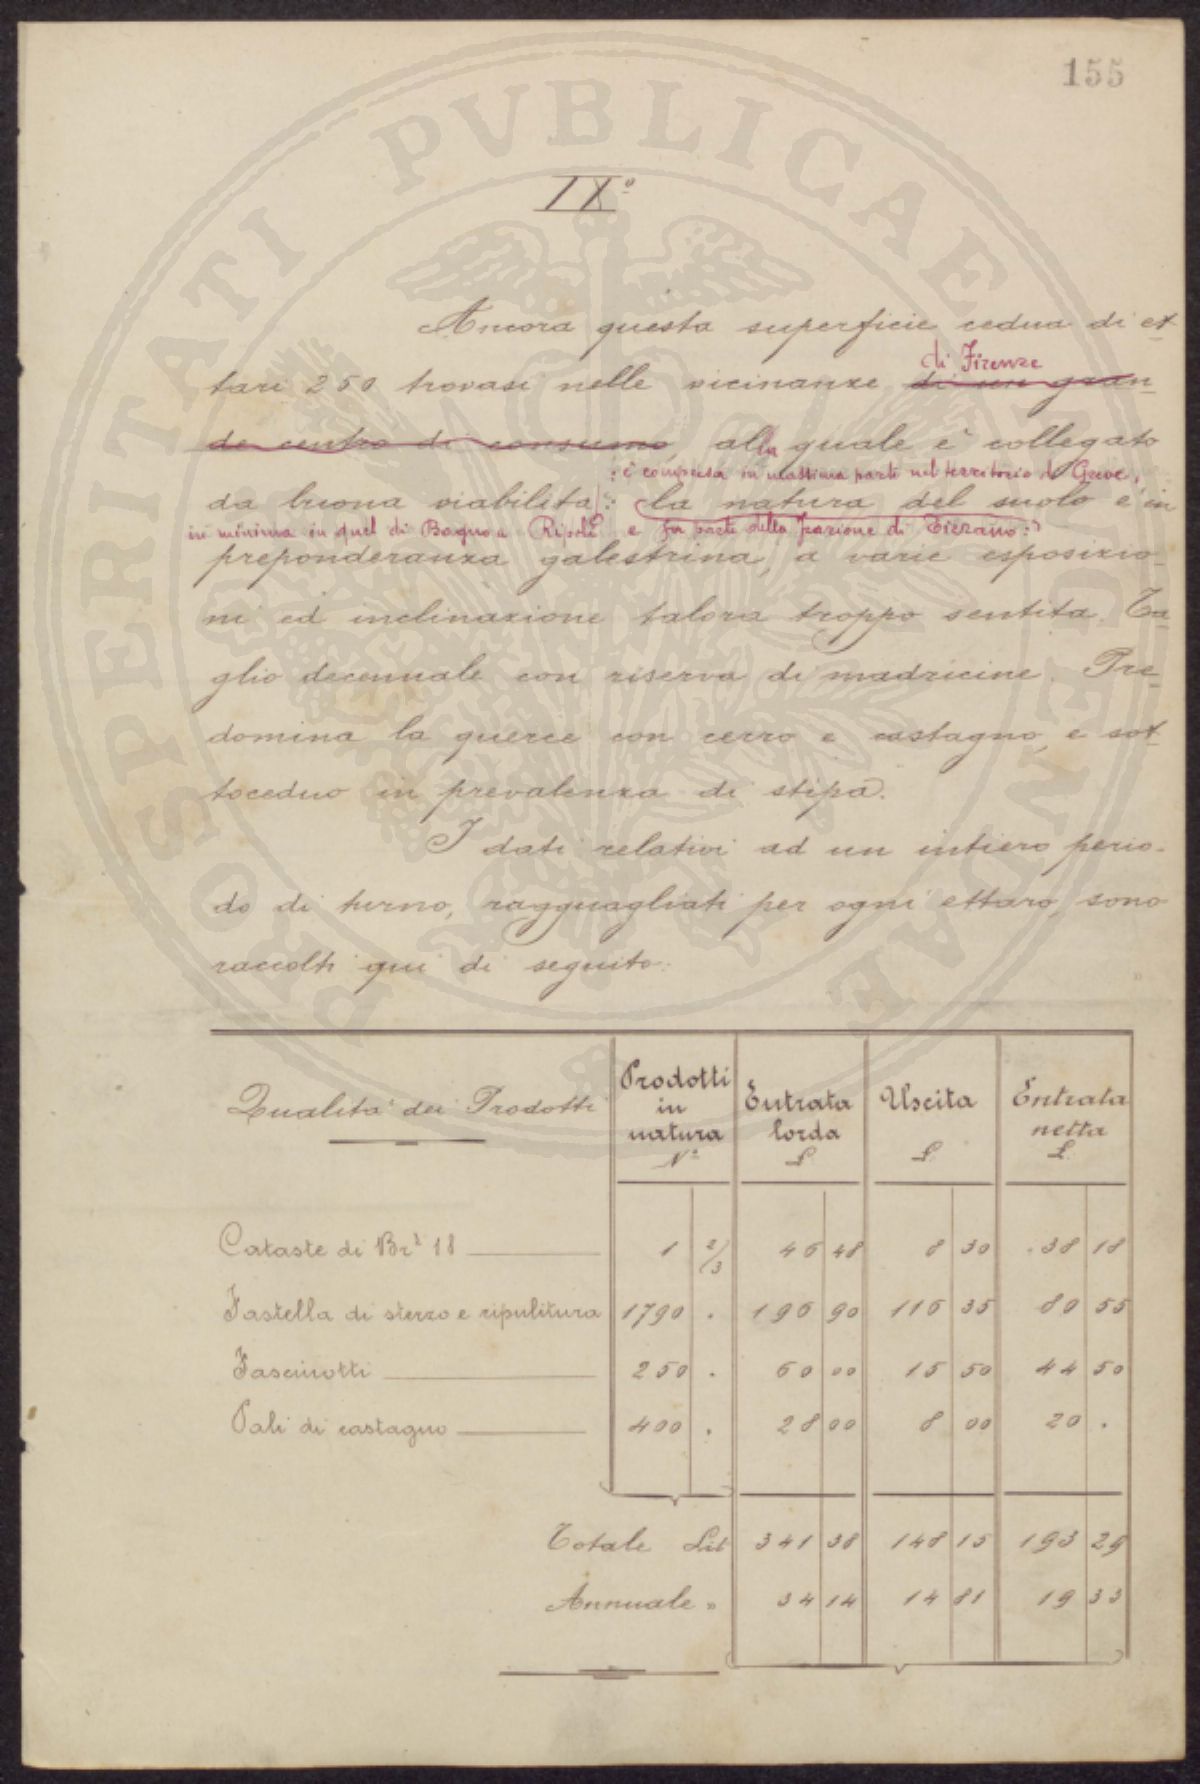 155
PROSPERITATI PUBLICAE AUGENDAE
IX°
Ancora questa superficie cedua di et-
di Firenze
tari 250 trovasi nelle vicinanze di un gran-
de centro di consumo, alla quale è collegato
: è compresa in massima parte nel territorio di Greve,
da buona viabilità: la natura del suolo è in
in minima in quel di Bagno a Ripoli e fa parte della frazione di
preponderanza galestrina, a varie esposizio-
ni ed inclinazione talora troppo sentita. Ta-
glio decennale con riserva di madricine. Pre-
domina la querce con cerro e castagno, e sot-
toceduo in prevalenza di stipa.
I dati relativi ad un intiero perio-
do di turno, ragguagliati per ogni ettaro, sono
raccolti qui di seguito:
Qualità dei Prodotti Prodotti in natura N° Entrata lorda £ Uscita £ Entrata netta £
Cataste di Br.ª 18 1 2/3 46 48 8 30 38 18
Fastella di sterzo e ripulitura 1790 . 196 90 116 35 80 55
Fascinotti 250 . 60 00 15 50 44 50
Pali di castagno 400 . 28 00 8 00 20 .
Totale Lit 341 38 148 15 193 29
Annuale " 34 14 14 81 19 33